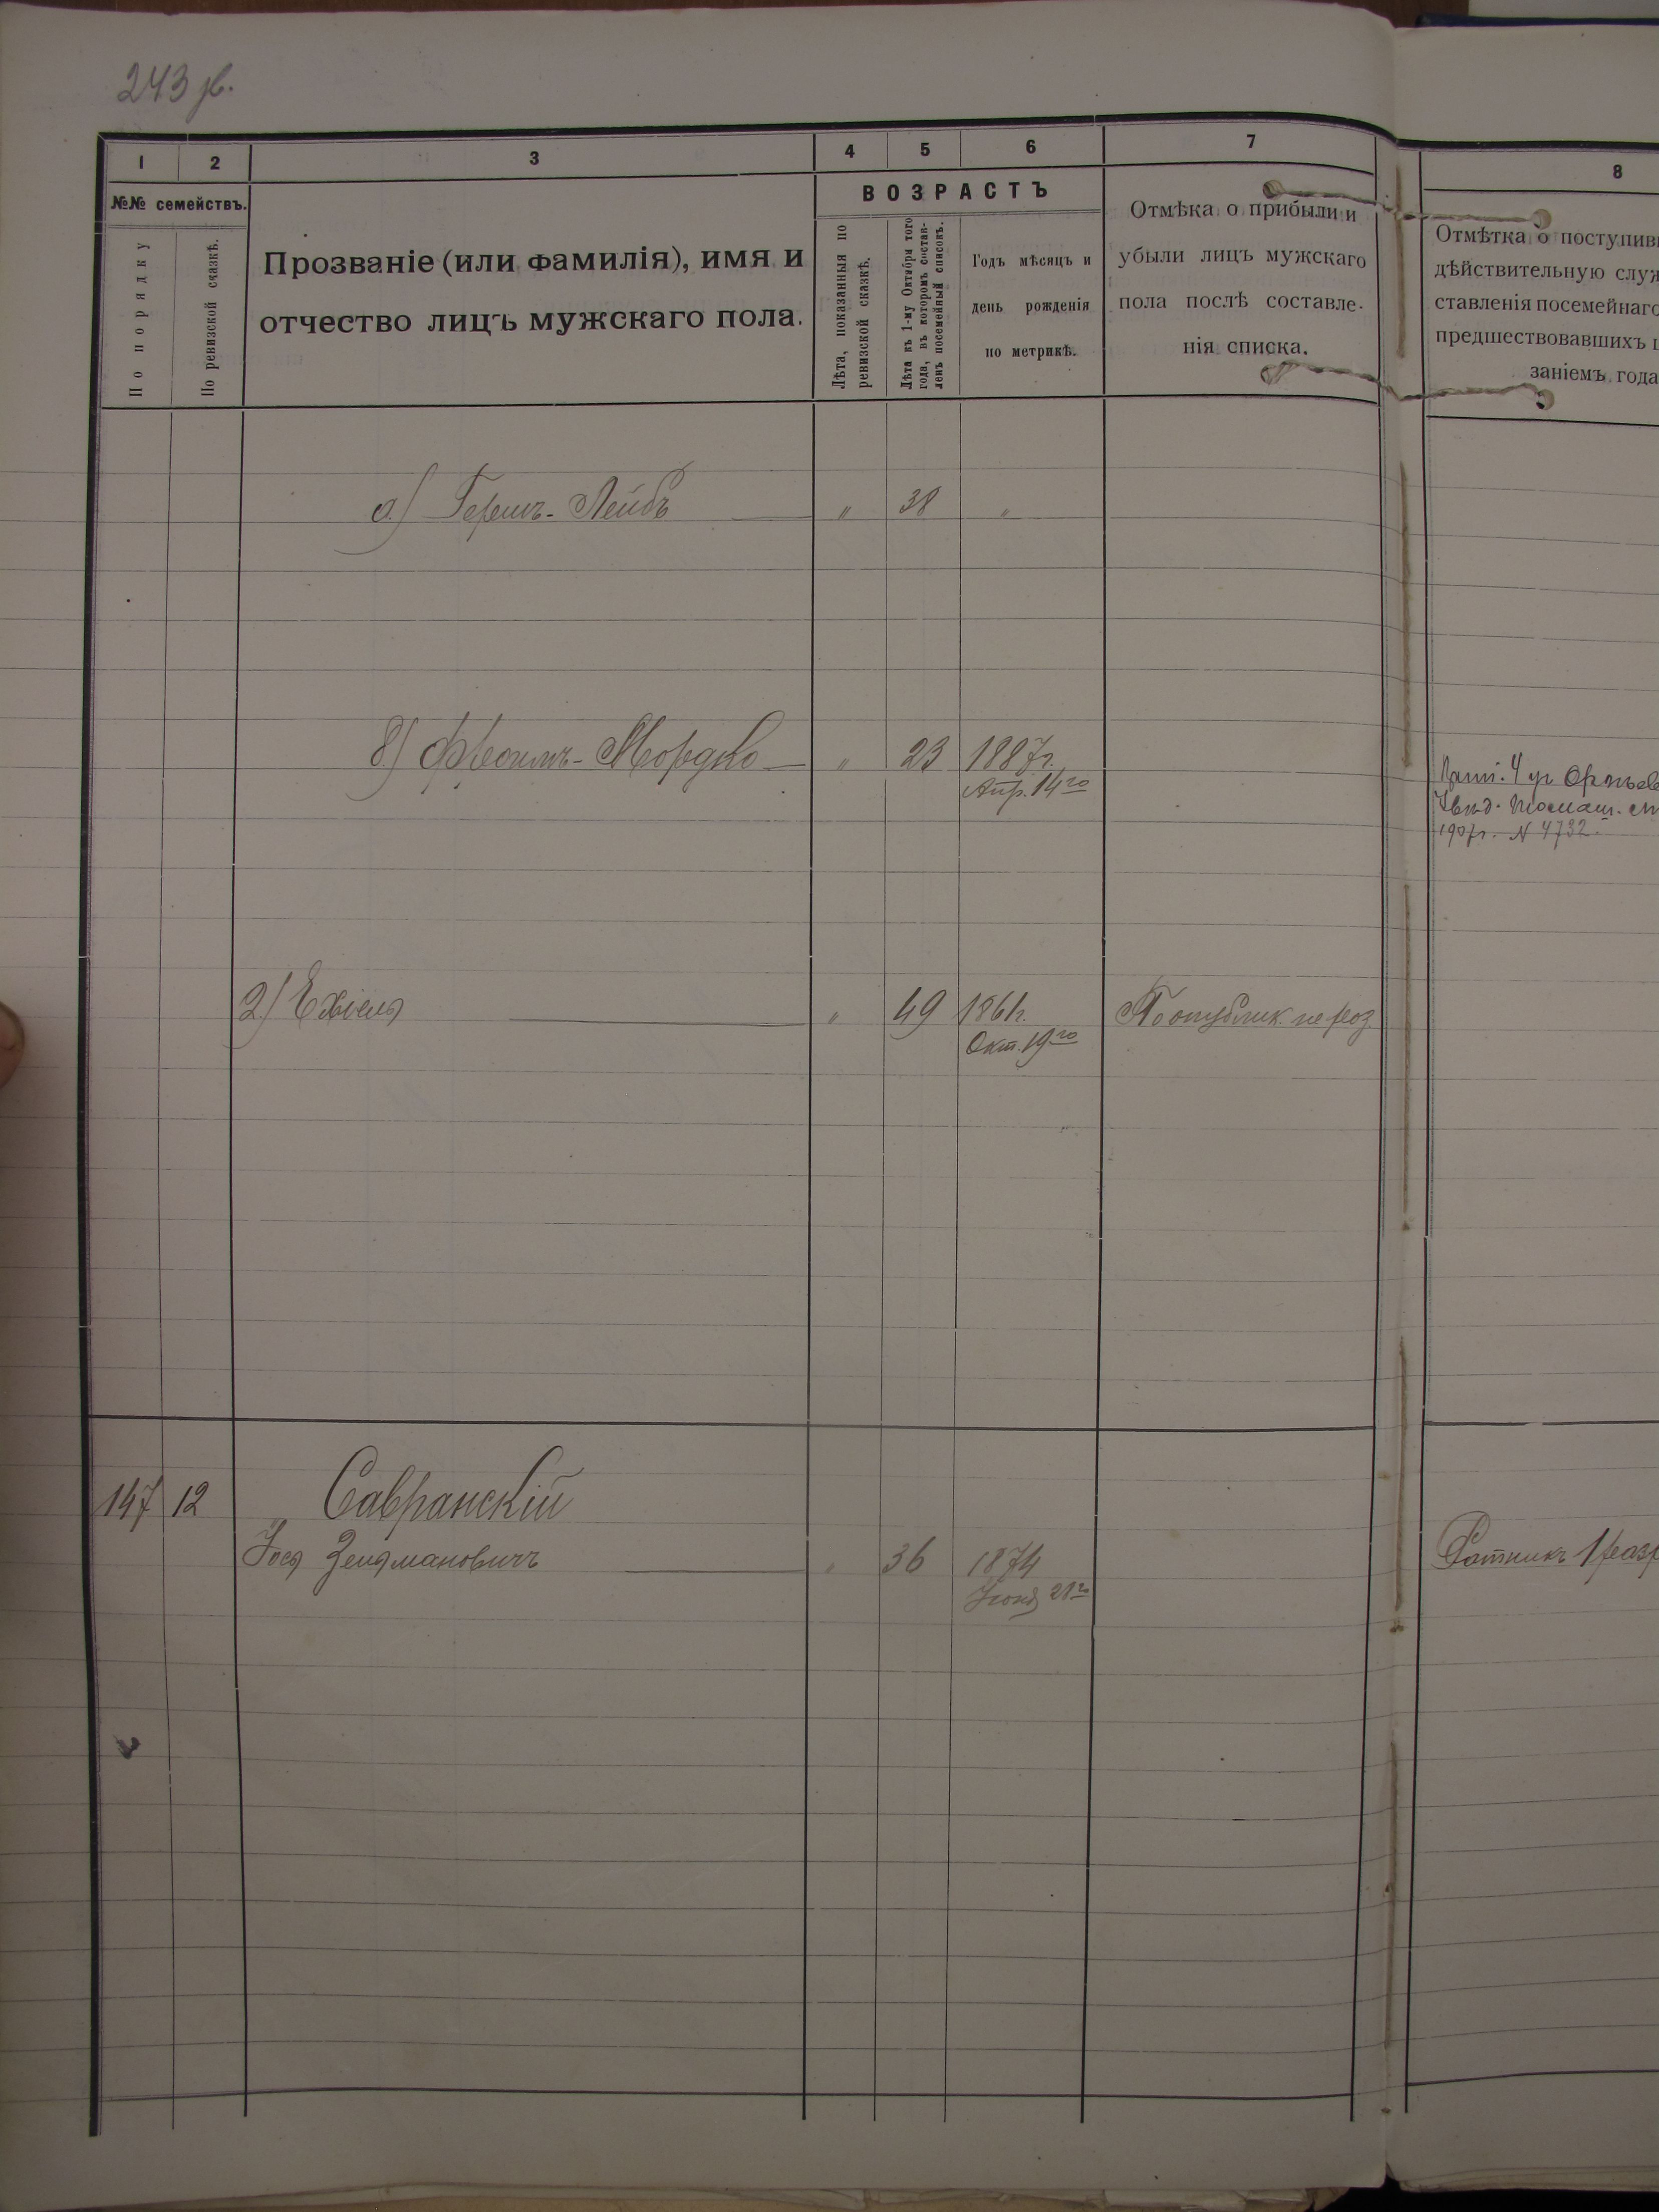 243 об.
1 2 3 4 5 6 7 8
№№ семействъ.
По порядку
По ревизской сказкѣ.
Прозваніе (или фамилія), имя и
отчество лицъ мужскаго пола.
ВОЗРАСТЪ
Лѣта, показанныя по
ревизской сказкѣ.
Лѣта къ 1-му Октября того
года, въ которомъ состав-
ленъ посемейный списокъ.
Годъ мѣсяцъ и
день рожденія
по метрикѣ.
Отмѣка о прибыли и
убыли лицъ мужскаго
пола послѣ составле-
нія списка.
Отмѣтка о поступив
дѣйствительную служ
ставленія посемейнаго
предшествовавшихъ
заніемъ года
а) Гершъ-Лейбъ " 38 "
б) Фроимъ-Мордко " 23 1887г.
Апр. 14го
4 уч
1907г. N 4732.
2) Ехіель " 49 1861г. По опублик. не роз.
Окт. 19го
147 12 Савранскій
Іося Зельмановичъ " 36 1874 Ратникъ 1 разр
Іюня 21го